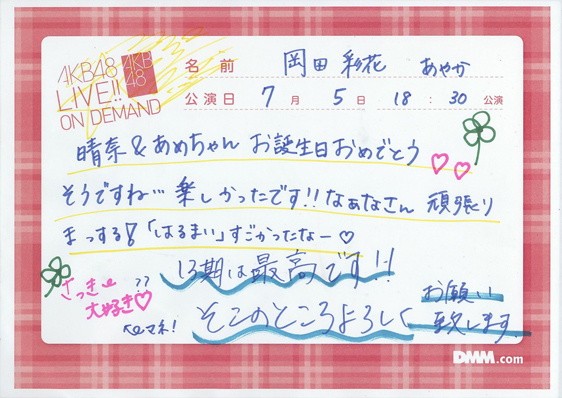 AKB48
LIVE!!
ON DEMAND
AKB
48
名前 岡田彩花 あやか
公演日 7月 5日 18:30公演
晴奈&あめちゃん お誕生日おめでとう
そうですね… 楽しかったです!! なぁなさん 頑張り
まっする! 「はるまい」すごかったなー♡
13期は最高です!!
さっきー
大好き♡
??
マネ!
そこのところよろしく
お願い
致します
DMM.com